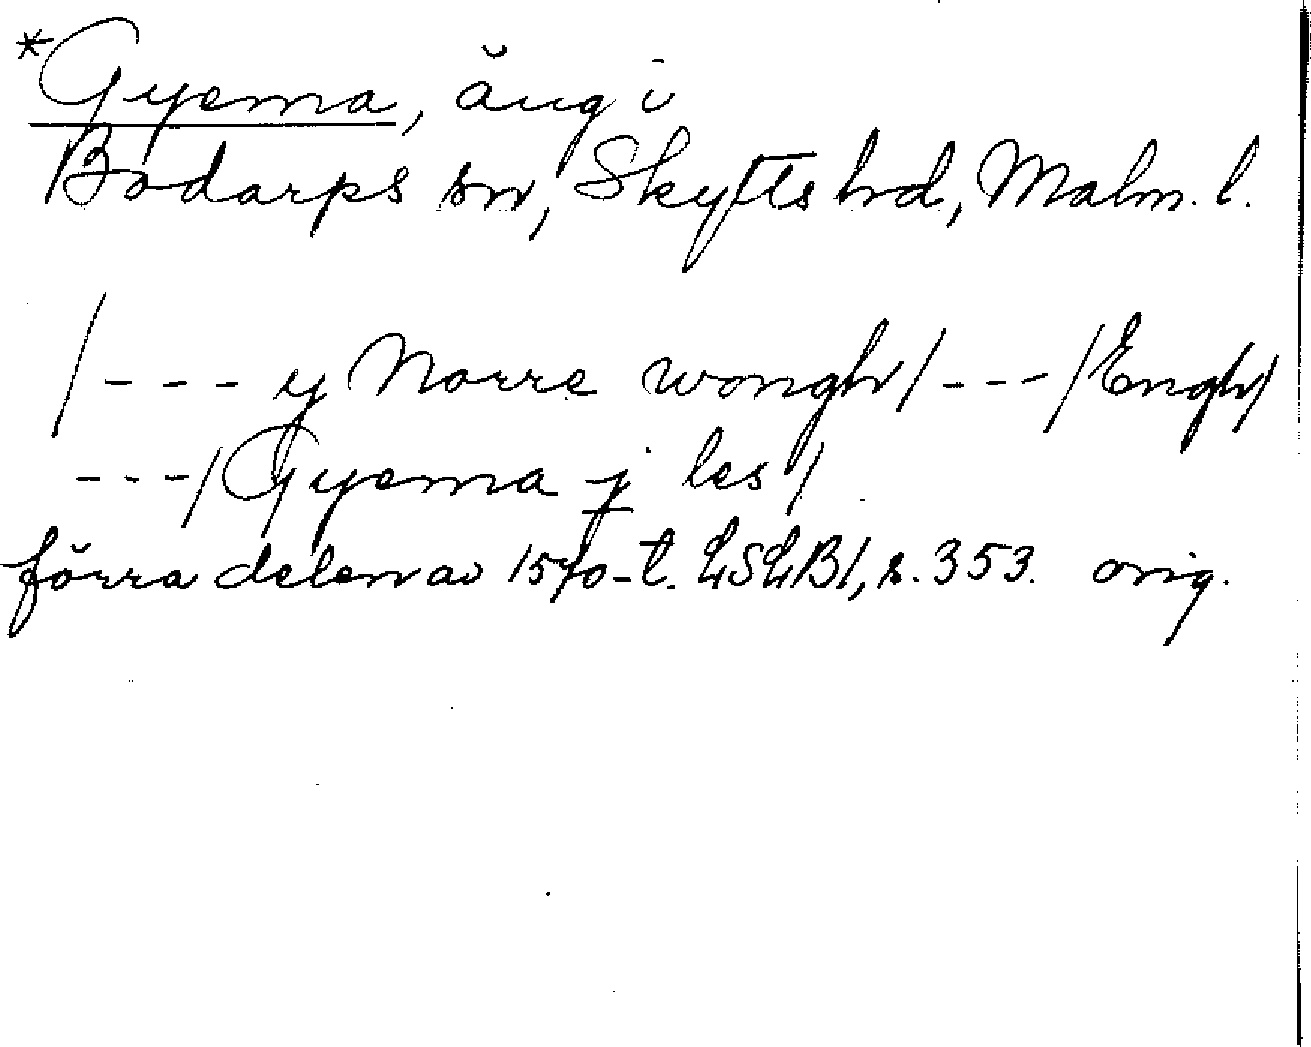 *Gyema, äng i
Bodarps sn, Skytts hd, Malm. l.
/--- y Norre wongh/---/Engh/
---/Gyema j les/
förra delen av 1570-t. LSLB1, s. 353. orig.